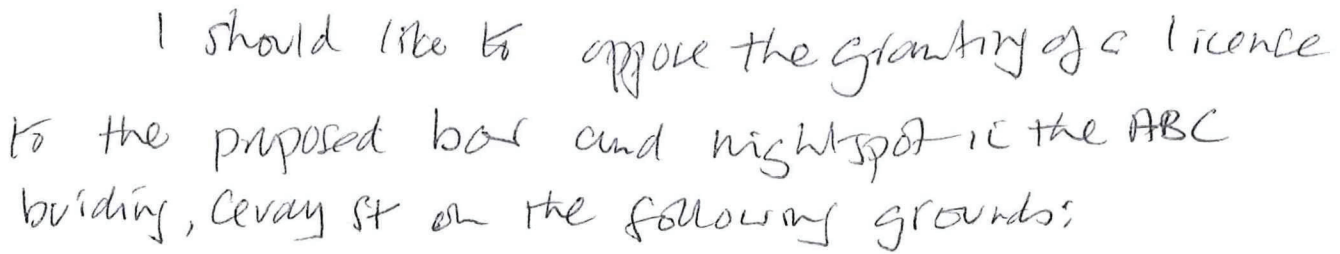 I should like to oppose the granting of a licence
to the proposed bar and nightspot in the ABC
building, St on the following grounds: